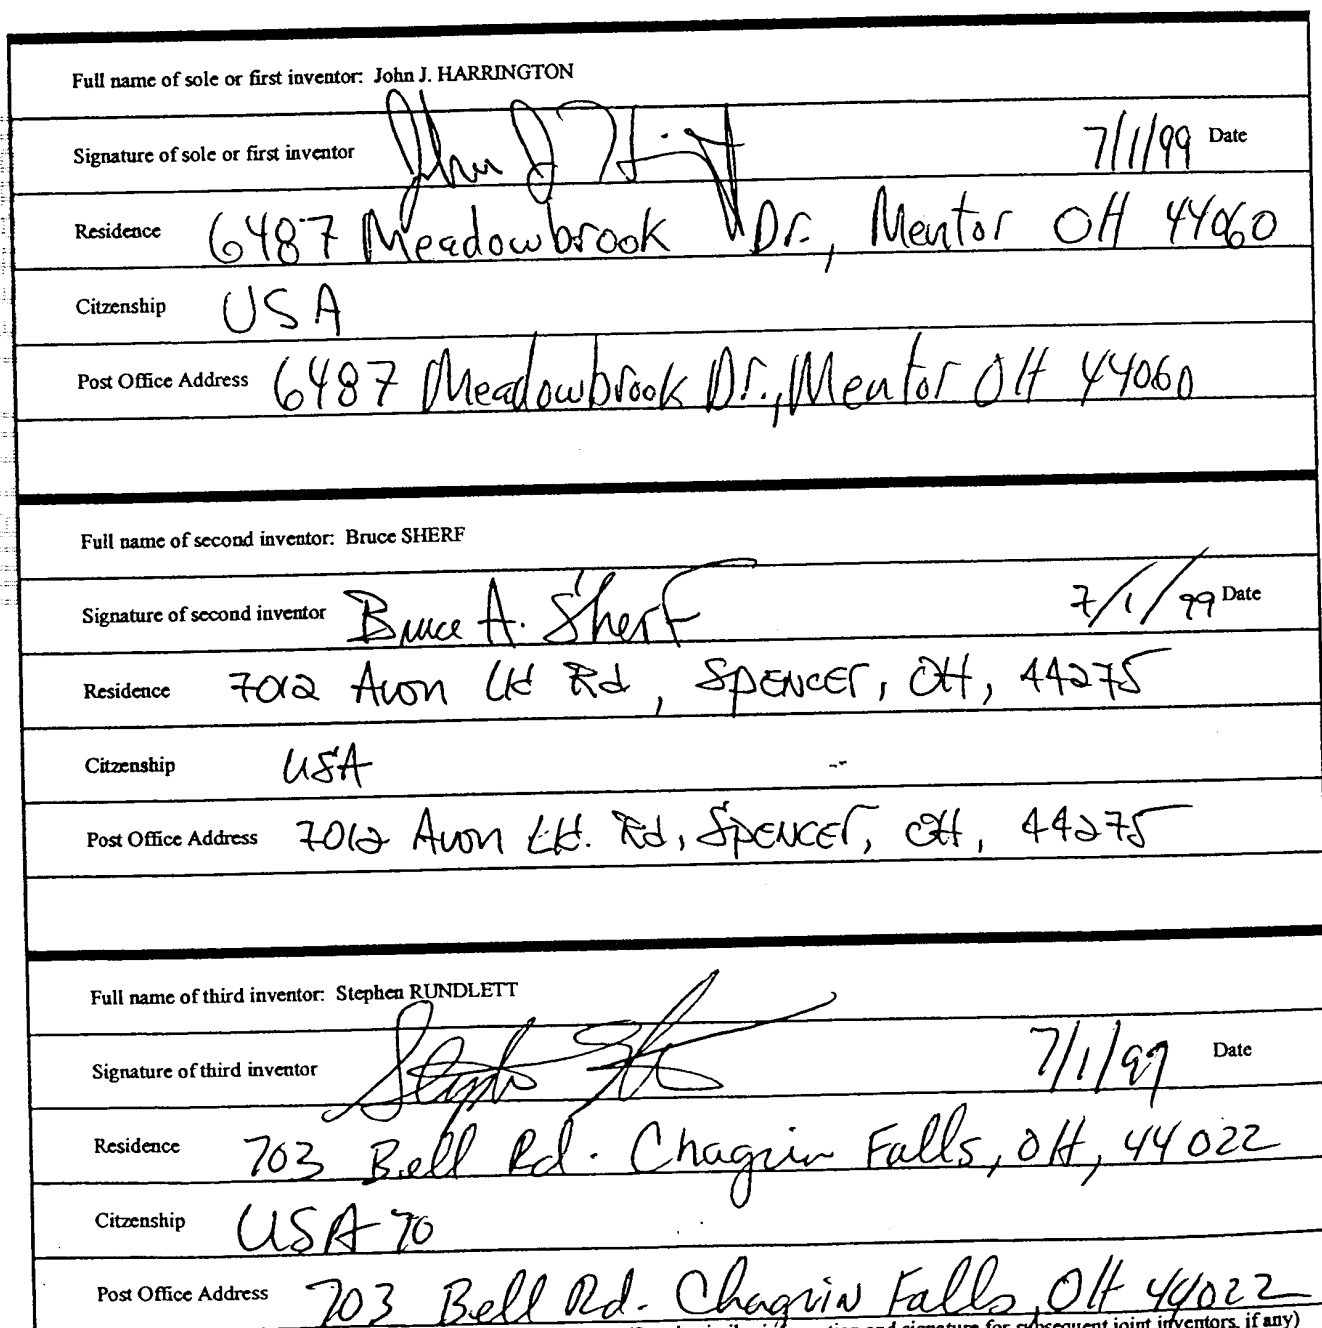 Full name of sole or first inventor: John J. HARRINGTON
Signature of sole or first inventor John J 7/1/99 Date
Residence 6487 Meadowbrook Dr., Mentor OH 44060
Citzenship USA
Post Office Address 6487 Meadowbrook Dr., Mentor OH 44060
Full name of second inventor: Bruce SHERF
Signature of second inventor Bruce A. Sherf 7/1/99 Date
Residence 7012 Avon Rd, SPENCEr, OH, 44275
Citzenship USA
Post Office Address 7012 Avon Rd, SPENCEr, OH, 44275
Full name of third inventor: Stephen RUNDLETT
Signature of third inventor 7/1/99 Date
Residence 703 Bell Rd. Chagrin Falls, OH, 44022
Citzenship USA
Post Office Address 703 Bell Rd. Chagrin Falls, OH 44022
and signature for subsequent joint inventors, if any)